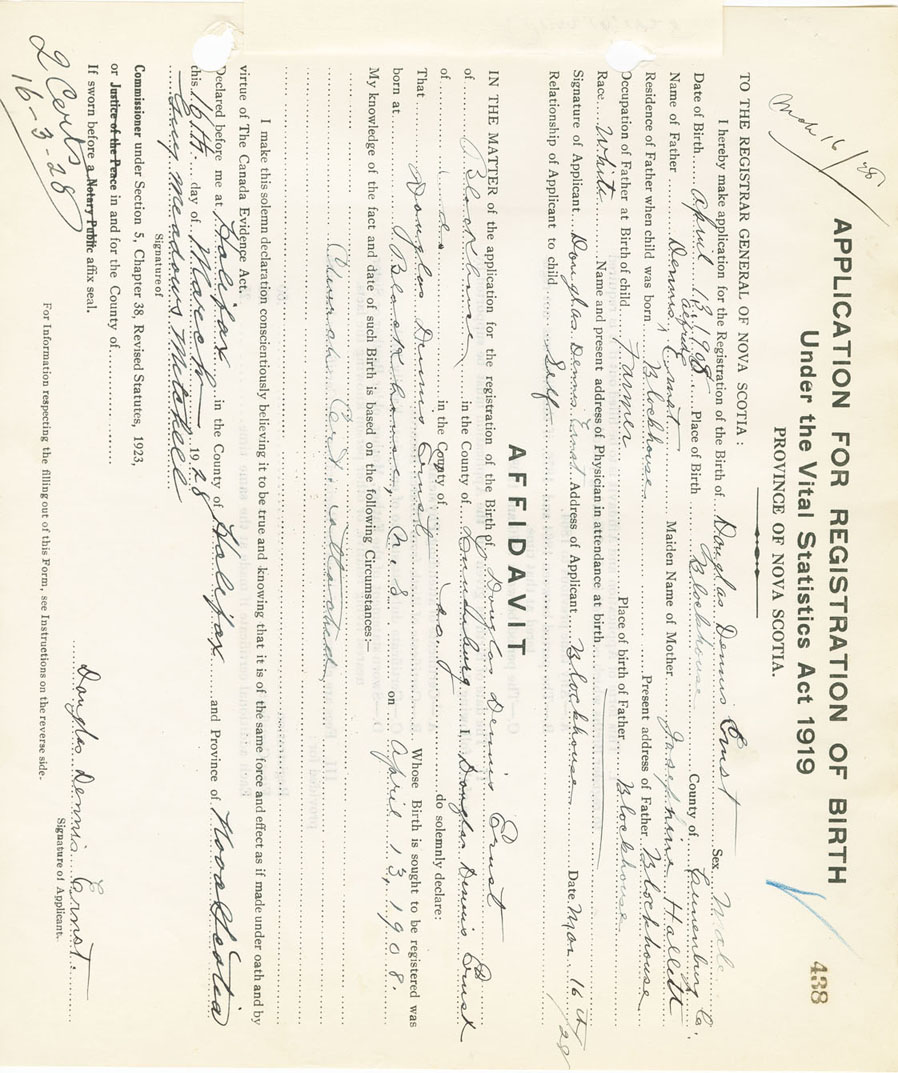 Mch 16/28
438
APPLICATION FOR REGISTRATION OF BIRTH
Under the Vital Statistics Act 1919
PROVINCE OF NOVA SCOTIA.
TO THE REGISTRAR GENERAL OF NOVA SCOTIA:
I hereby make application for the Registration of the Birth of Douglas Dennis Ernst Sex Male
Date of Birth April 13, 1908 Place of Birth Blockhouse County of Lunenburg Co.
Name of Father Dennis Ernst Maiden Name of Mother Josephine Hallett
Residence of Father when child was born Blockhouse Present address of Father Blockhouse
Occupation of Father at Birth of child Farmer Place of birth of Father Blockhouse
Race White Name and present address of Physician in attendance at birth
Signature of Applicant Douglas Dennis Ernst Address of Applicant Blockhouse Date Mar 16th/28
Relationship of Applicant to child Self
AFFIDAVIT
IN THE MATTER of the application for the registration of the Birth of Douglas Dennis Ernst
of Blockhouse in the County of Lunenburg I, Douglas Dennis Ernst
of in the County of do solemnly declare:
That Douglas Dennis Ernst Whose Birth is sought to be registered was
born at Blockhouse, N.S. on April 13, 1908.
My knowledge of the fact and date of such Birth is based on the following Circumstances:—
Church Cert. attached
I make this solemn declaration conscientiously believing it to be true and knowing that it is of the same force and effect as if made under oath and by
virtue of The Canada Evidence Act.
Declared before me at Halifax in the County of Halifax and Province of Nova Scotia
this 16th day of March 1928
Meadows Mitchell
Signature of
Douglas Dennis Ernst.
Signature of Applicant.
Commissioner under Section 5, Chapter 38, Revised Statutes, 1923,
or Justice of the Peace in and for the County of
If sworn before a Notary Public affix seal.
For Information respecting the filling out of this Form, see Instructions on the reverse side.
2 Certs
16-3-28